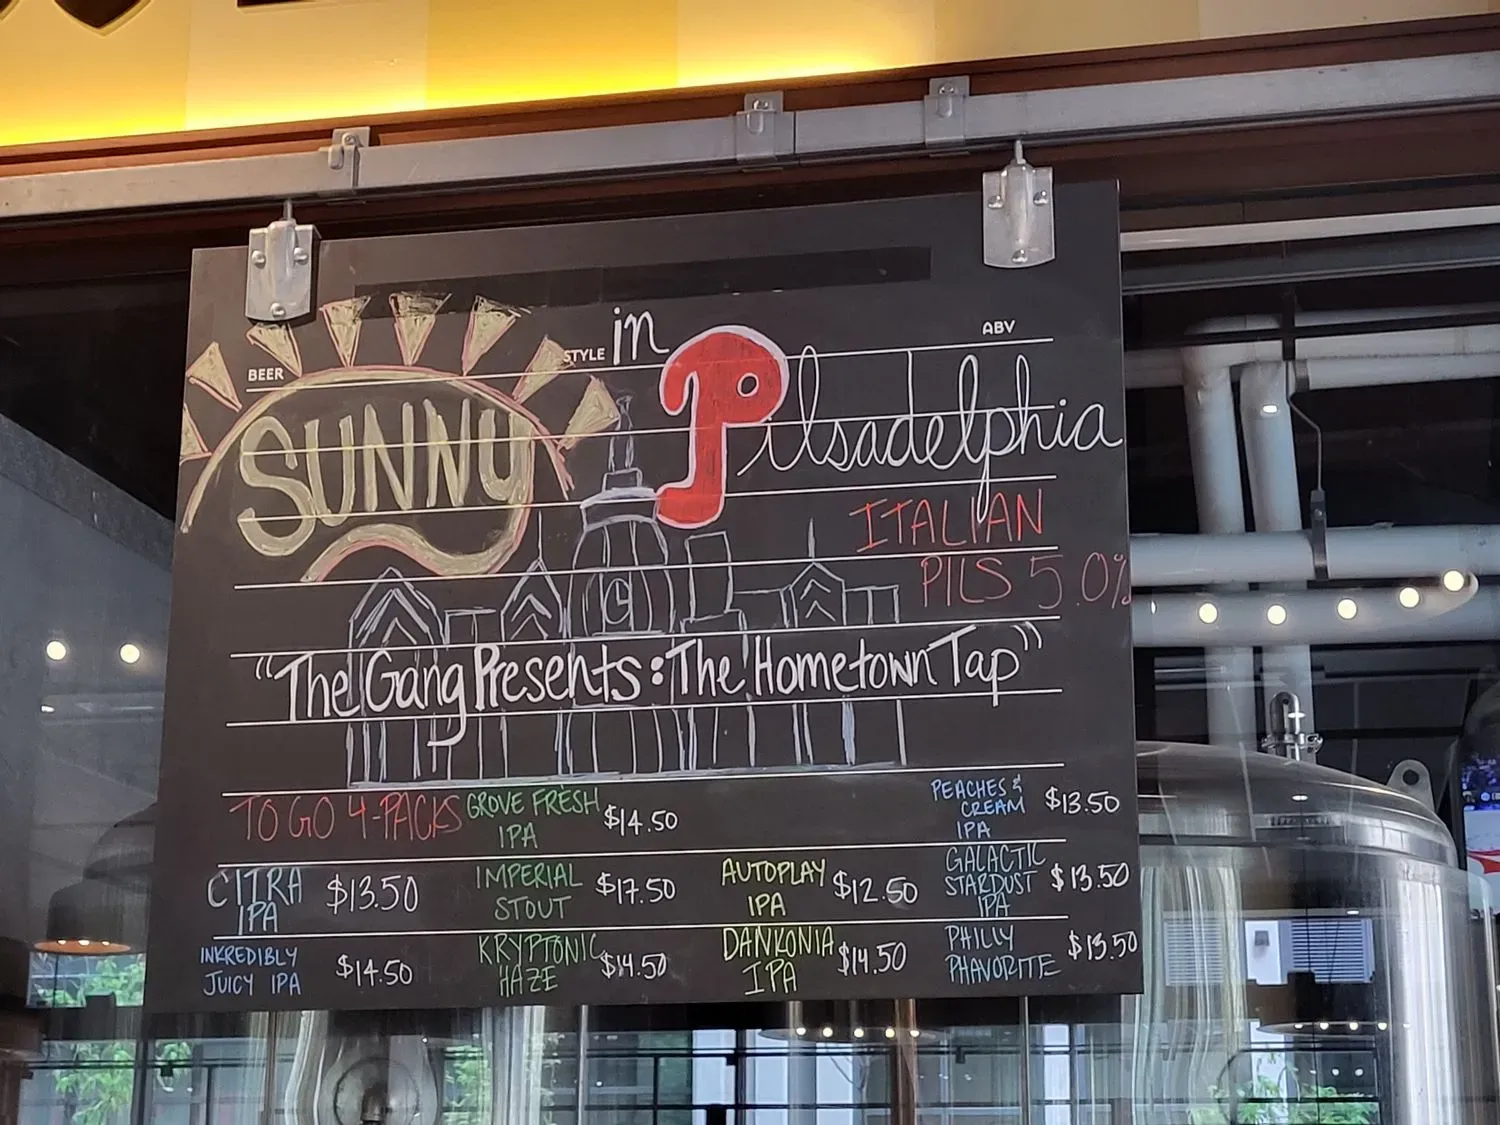 BEER
STYLE
ABV
SUNNY
in
Pilsadelphia
ITALIAN
PILS 5.0%
"The Gang Presents: The Hometown Tap"
TO GO 4-PACKS
GROVE FRESH
IPA
$14.50
PEACHES &
CREAM
IPA
$13.50
CITRA
IPA
$13.50
IMPERIAL
STOUT
$17.50
AUTOPLAY
IPA
$12.50
GALACTIC
STARDUST
IPA
$13.50
INKREDIBLY
JUICY IPA
$14.50
KRYPTONIC
HAZE
$14.50
DANKONIA
IPA
$14.50
PHILLY
PHAVORITE
$13.50